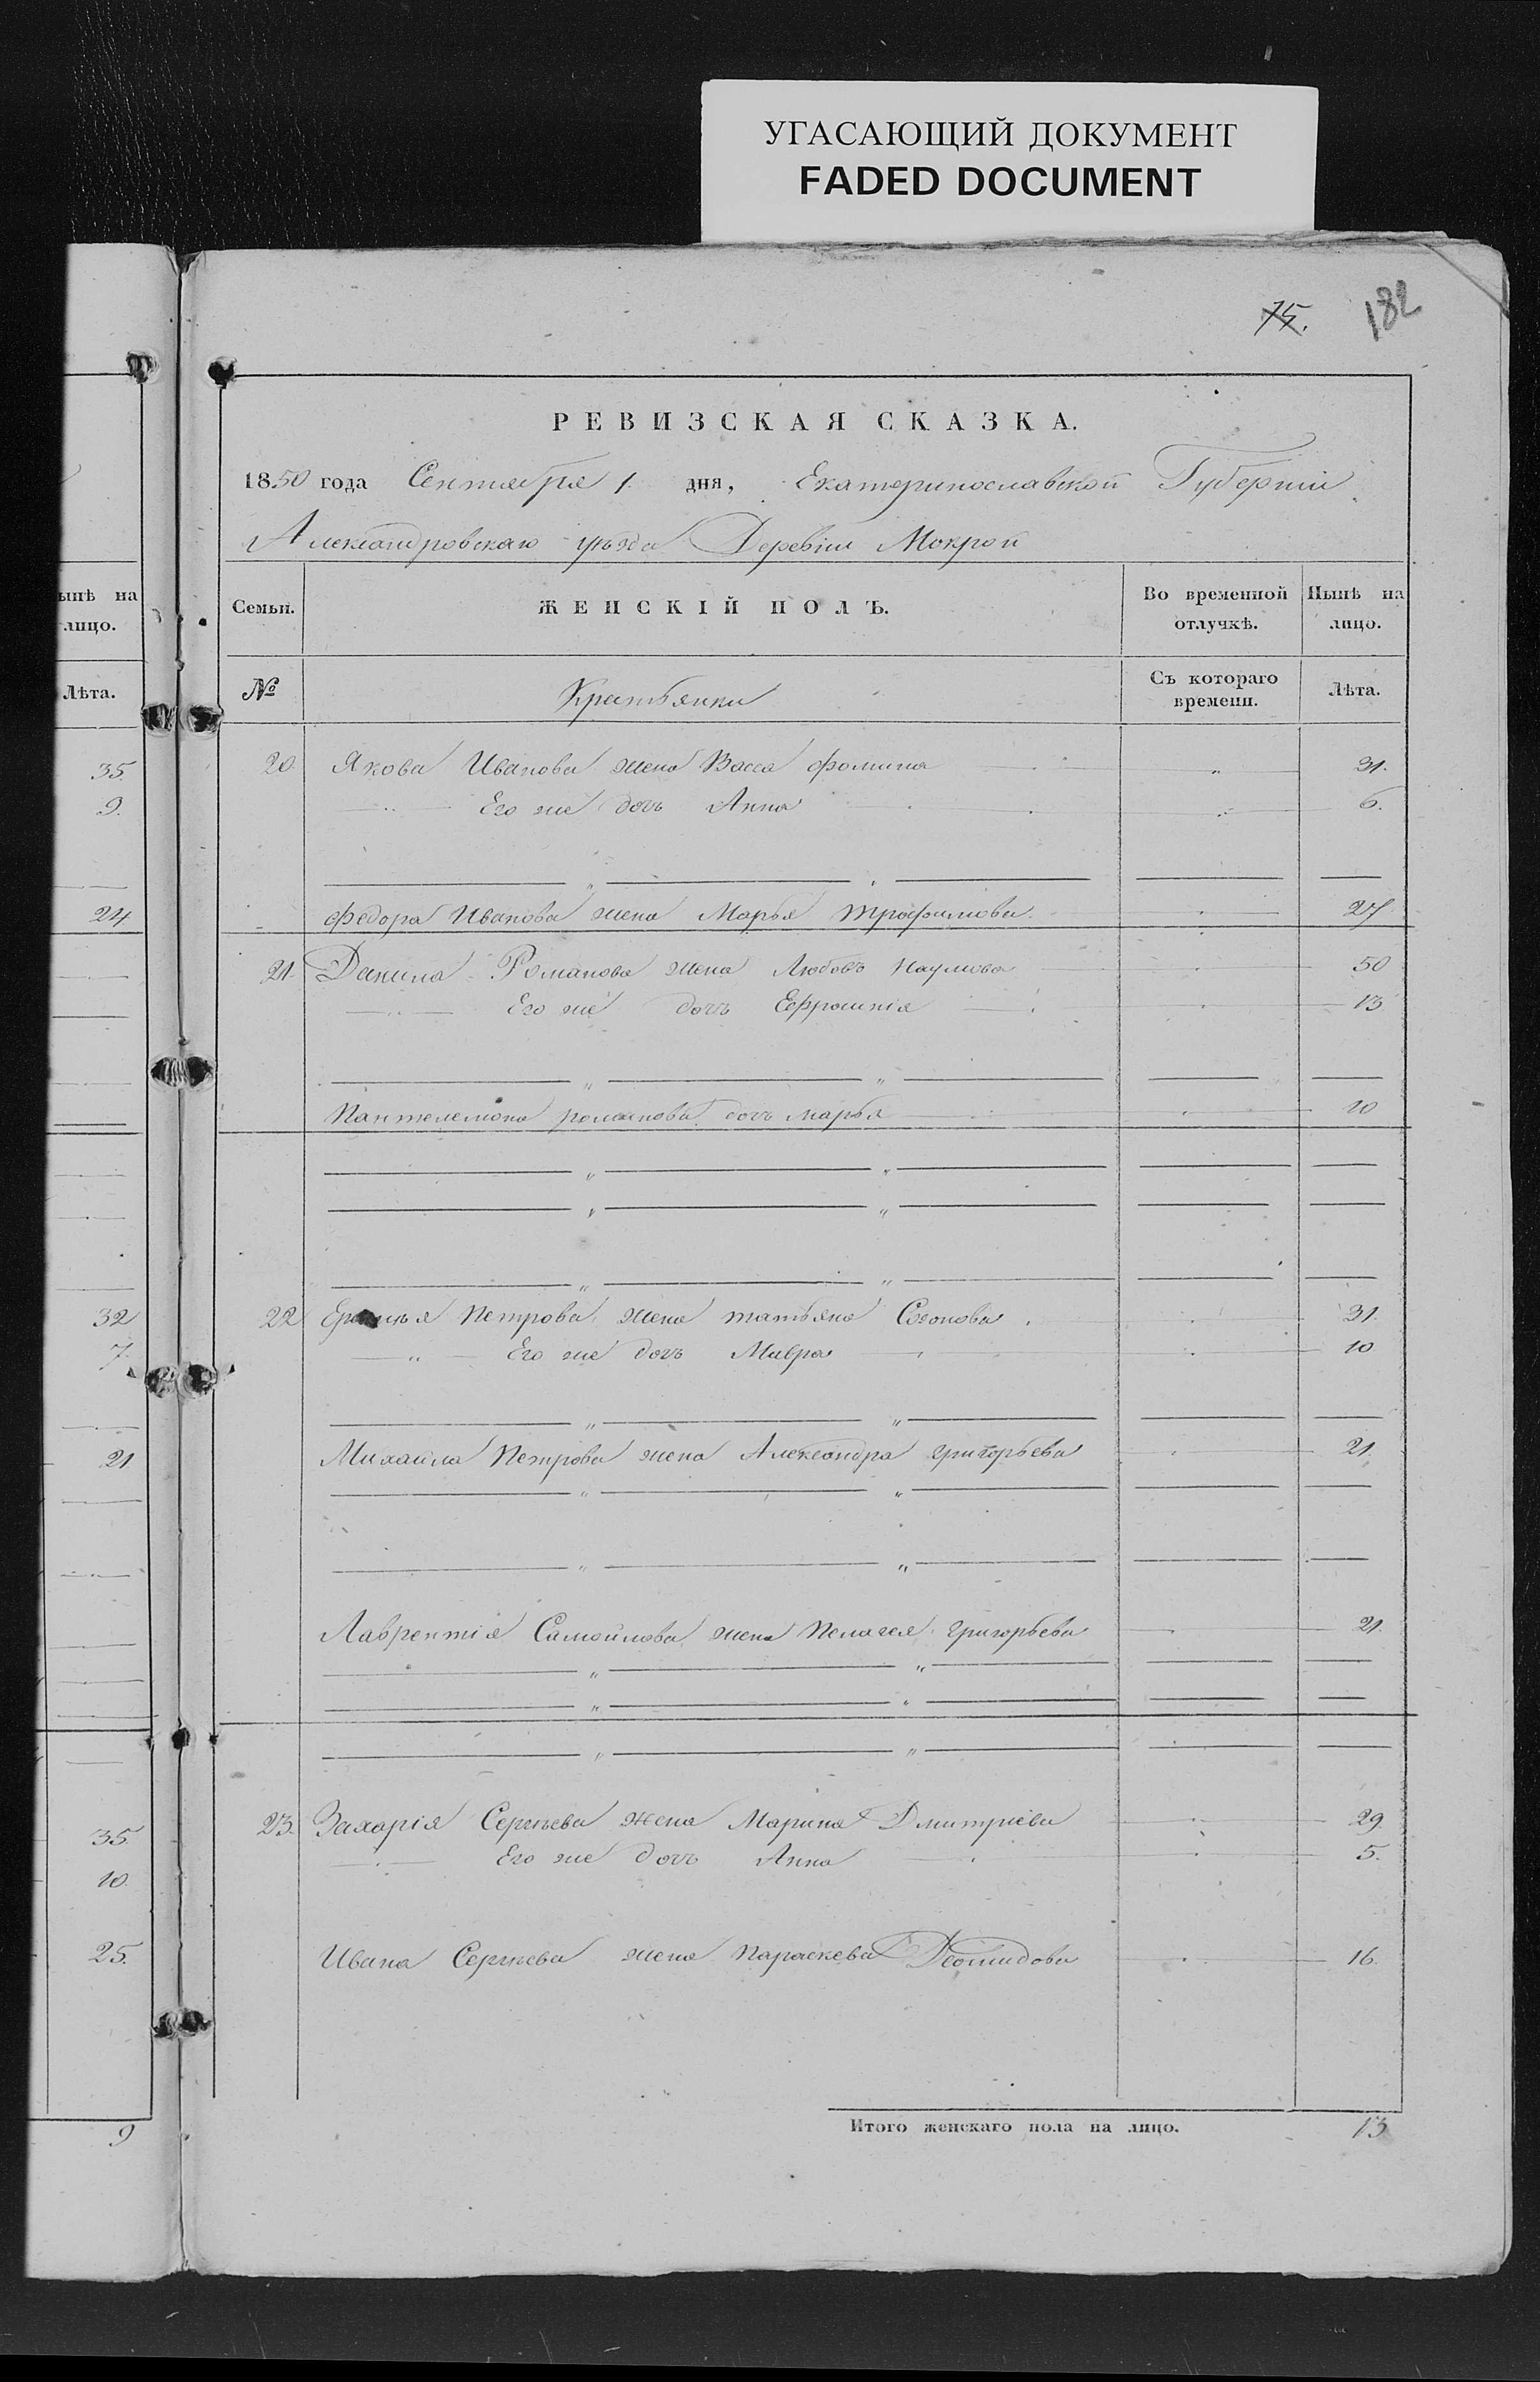 УГАСАЮЩИЙ ДОКУМЕНТ
FADED DOCUMENT
75. 182
РЕВИЗСКАЯ СКАЗКА.
1850 года Сентября 1 дня, Екатеринославской Губерніи
Александровскаго уѣзда Деревни Мокрой
ынѣ на лицо.
Лѣта.
35.
9.
24
32
7.
21
35.
10.
25.
9
Семьи. ЖЕНСКІЙ ПОЛЪ. Во временной отлучкѣ. Нынѣ на лицо.
№ Крестьянки Съ котораго времени. Лѣта.
20 Якова Иванова жена Васса Фомина 31.
Его же дочь Анна 6.
Федора Иванова жена Марья Трофимова 27
21. Данила Романова жена Любовь Наумова 50
Его же дочь Ефросинія 13
Пантелемона романова дочь марья 10
22 Петрова жена татьяна 31.
Его же дочь Мавра 10
Михаила Петрова жена Александра григорьева 21.
Лаврентія Самойлова жена Пелагея григорьева 21.
23. Захарія Сергѣева жена Марина Дмитріева 29
Его же дочь Анна 5.
Ивана Сергѣева жена Параскева 16.
Итого женскаго пола на лицо. 13